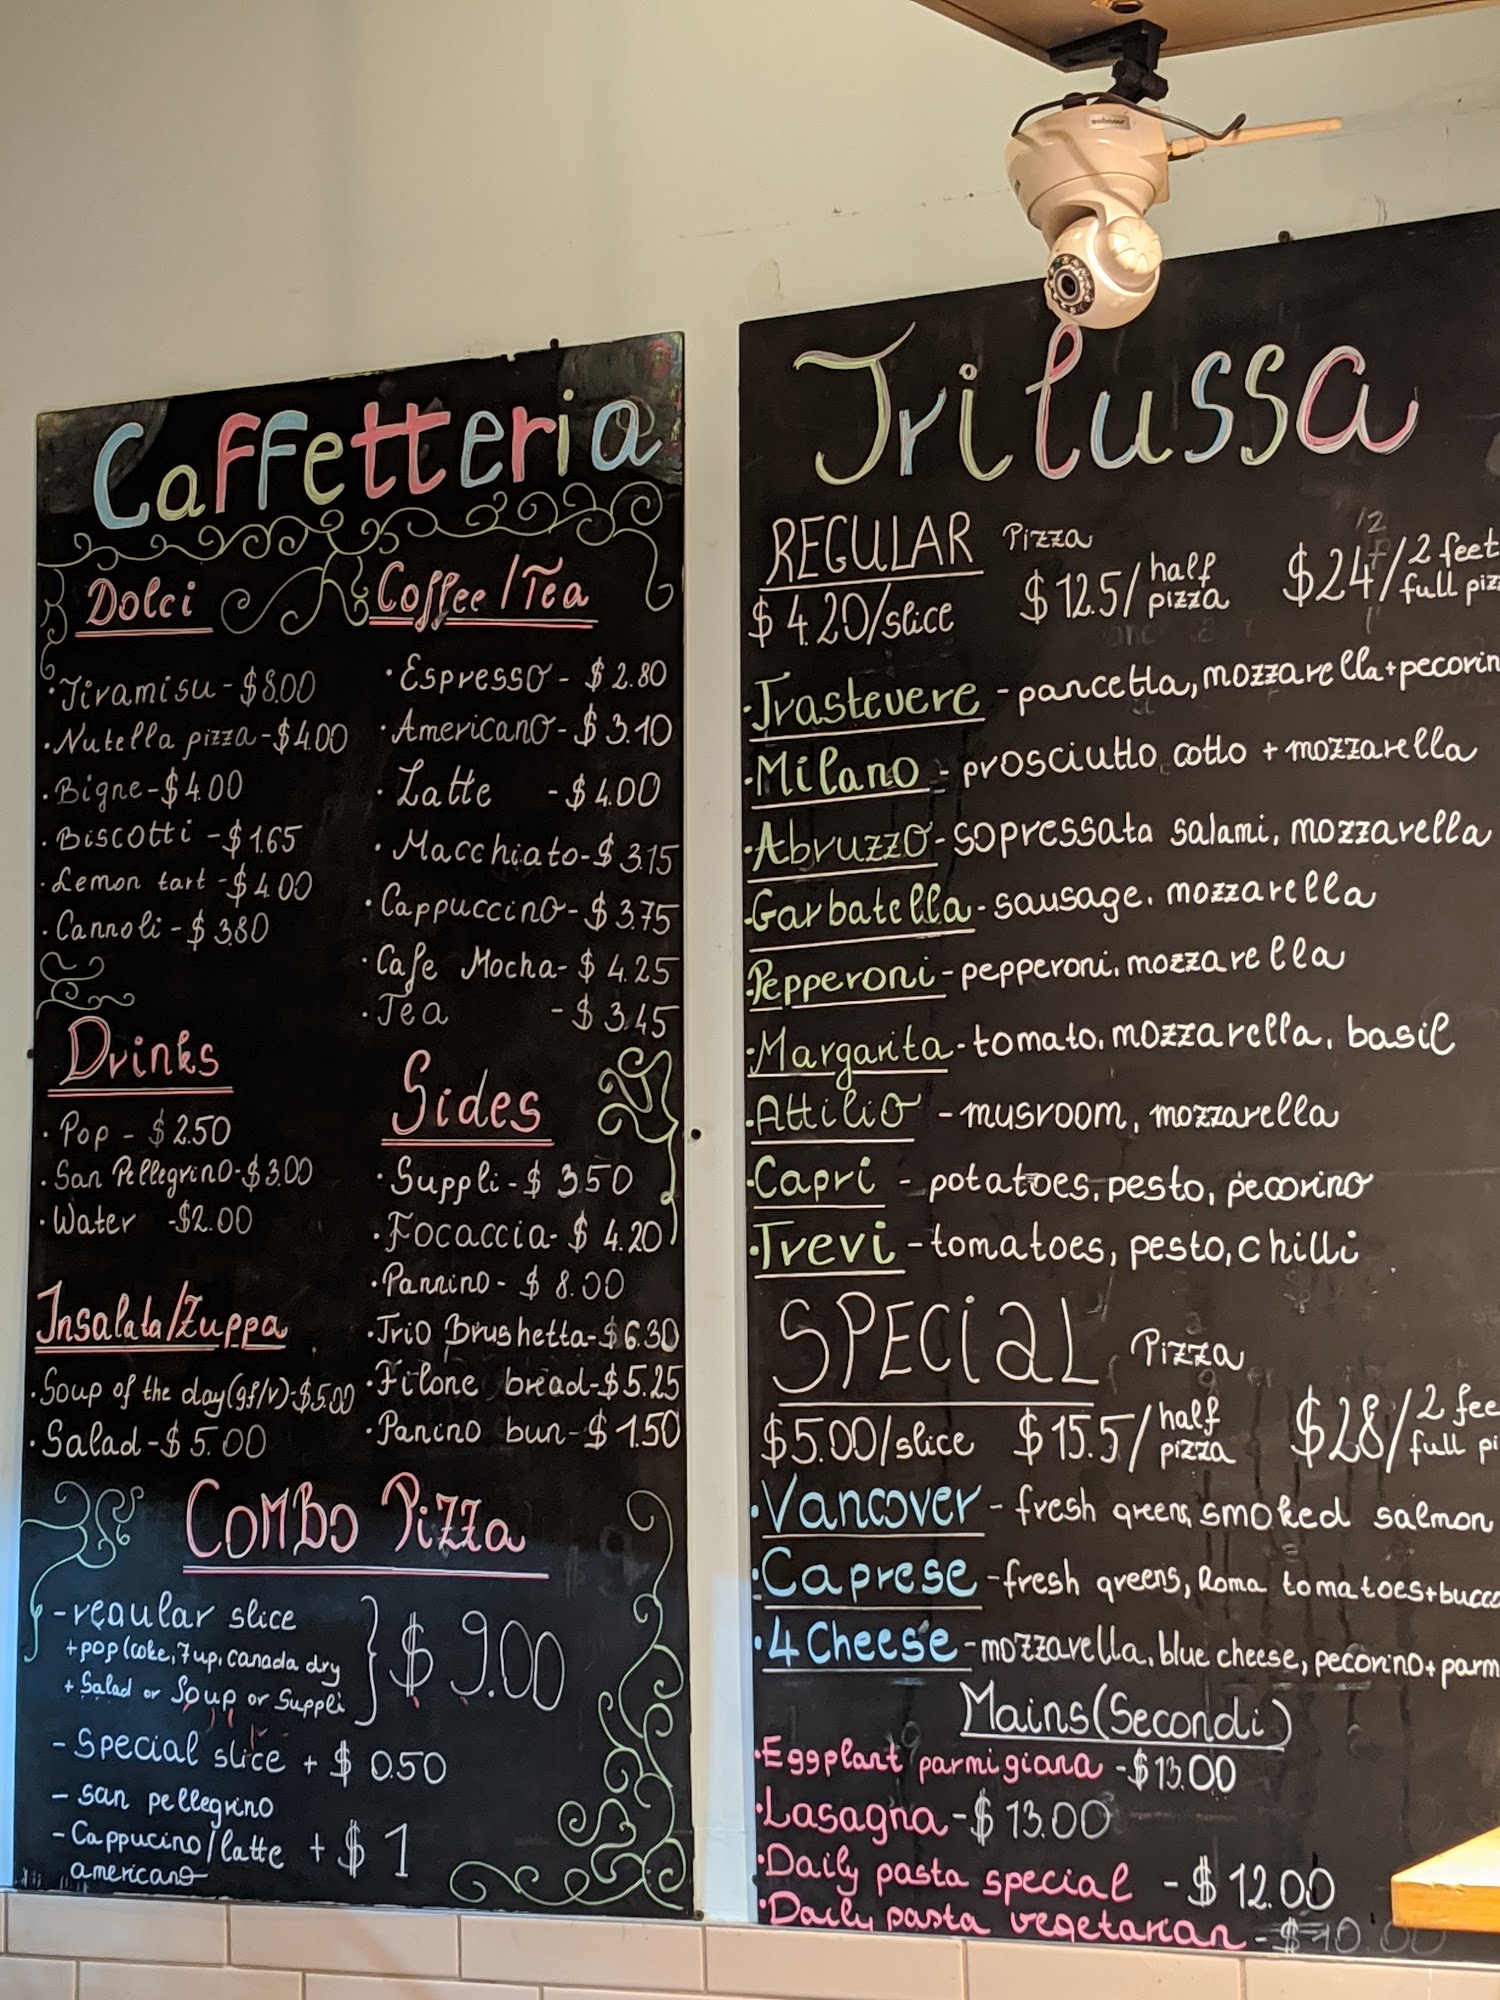 Caffetteria
Dolci
·Tiramisu - $8.00
·Nutella pizza - $4.00
·Bigne - $4.00
·Biscotti - $1.65
·Lemon tart - $4.00
·Cannoli - $3.80
Coffee/Tea
·Espresso - $2.80
·Americano - $3.10
·Latte - $4.00
·Macchiato - $3.15
·Cappuccino - $3.75
·Cafe Mocha - $4.25
·Tea - $3.45
Drinks
·Pop - $2.50
·San Pellegrino - $3.00
·Water - $2.00
Sides
·Suppli - $3.50
·Focaccia - $4.20
·Pannino - $8.00
·Trio Brushetta - $6.30
·Filone bread - $5.25
·Panino bun - $1.50
Insalata/Zuppa
·Soup of the day (gf/v) - $5.00
·Salad - $5.00
Combo Pizza
- regular slice
+ pop (coke, 7up, canada dry
+ Salad or Soup or Suppli
} $9.00
- Special slice + $0.50
- san pellegrino
- Cappucino/latte + $1
americano
Trilussa
REGULAR Pizza
$4.20/slice $12.5/half pizza $24/2 feet full
·Trastevere - pancetta, mozzarella + 
·Milano - prosciutto cotto + mozzarella
·Abruzzo - sopressata salami, mozzarella
·Garbatella - sausage, mozzarella
·Pepperoni - pepperoni, mozzarella
·Margarita - tomato, mozzarella, basil
·Attilio - musroom, mozzarella
·Capri - potatoes, pesto, pecorino
·Trevi - tomatoes, pesto, chilli
SPECIAL Pizza
$5.00/slice $15.5/half pizza $28/2 full
·Vancover - fresh greens, smoked salmon
·Caprese - fresh greens, Roma tomatoes +
·4 Cheese - mozzarella, blue cheese, pecorino +
Mains (Secondi)
·Eggplant parmigiana - $13.00
·Lasagna - $13.00
·Daily pasta special - $12.00
·Daily pasta vegetarian - $10.00